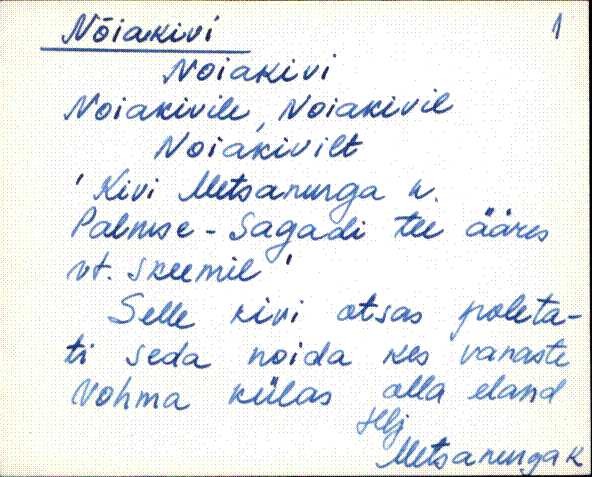 Nõiakivi
1
Noiakivi
Noiakivile, Noiakivil
Noiakivilt
' Kivi Metsanurga k.
Palmse - Sagadi tee ääres
vt. skeemil '
Selle kivi otsas poleta-
ti seda noida kes vanaste
Vohma külas olla eland
Hlj
Metsanurga k